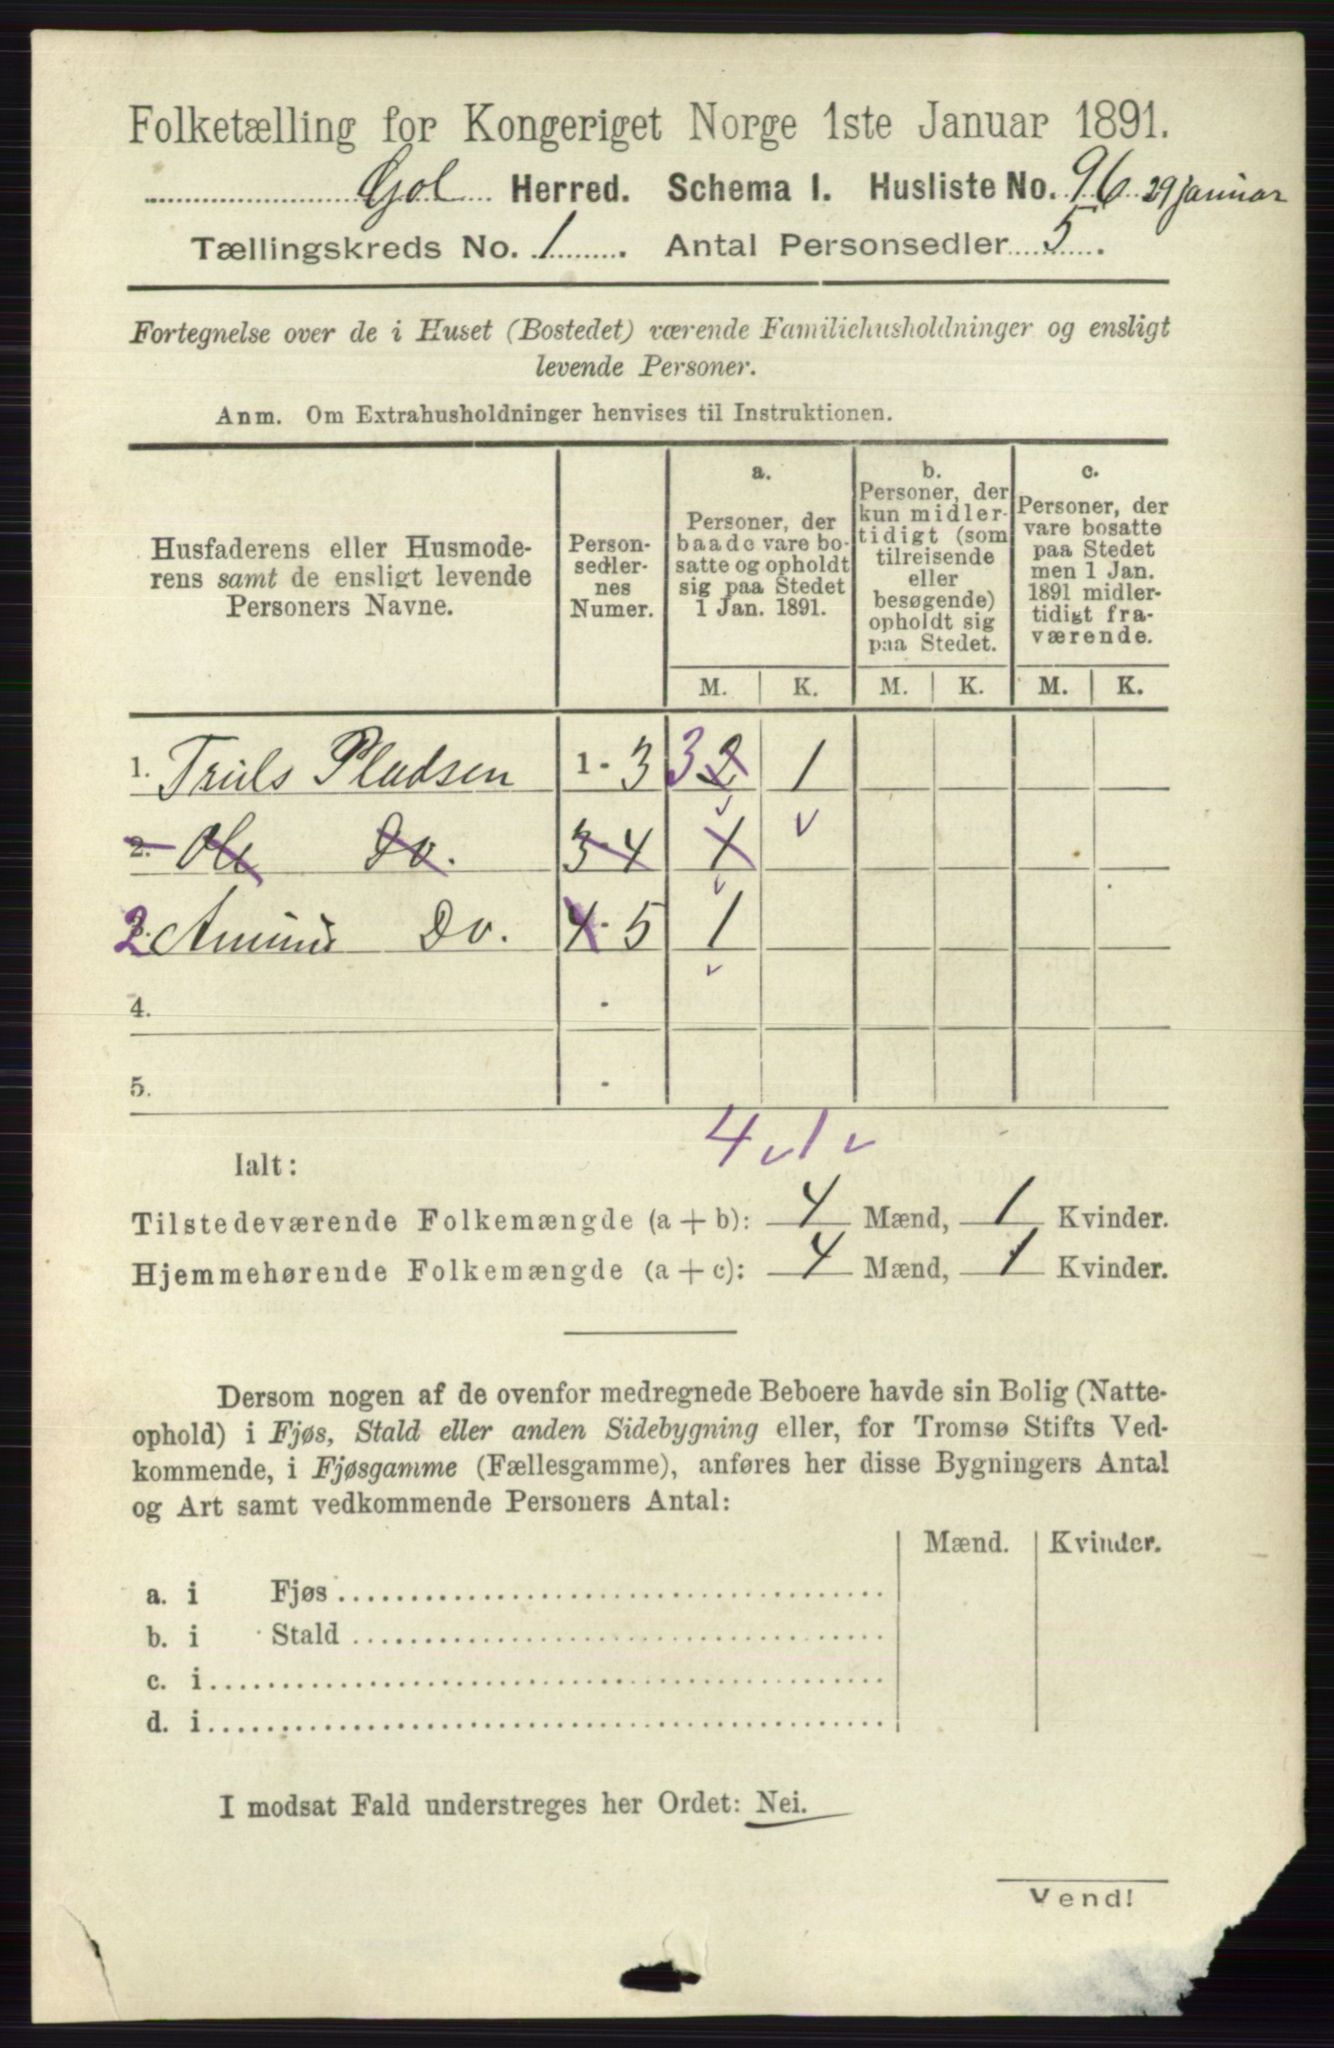 Folketælling for Kongeriget Norge 1ste Januar 1891.
Gol Herred. Schema I. Husliste No. 96 29 januar
Tællingskreds No. 1. Antal Personsedler 5.
Fortegnelse over de i Huset (Bostedet) værende Familiehusholdninger og ensligt
levende Personer.
Anm. Om Extrahusholdninger henvises til Instruktionen.
Husfaderens eller Husmode-
rens samt de ensligt levende
Personers Navne.
Person-
sedler-
nes
Numer.
a.
Personer, der
baade vare bo-
satte og opholdt
sig paa Stedet
1 Jan. 1891.
b.
Personer, der
kun midler-
tidigt (som
tilreisende
eller
besøgende)
opholdt sig
paa Stedet.
c.
Personer, der
vare bosatte
paa Stedet
men 1 Jan.
1891 midler-
tidigt fra-
værende.
M. K. M. K. M. K.
1. Truls Pladsen 1 - 3 3 2 1
2. Ole Do. 3-4 1
2 Do. 4 - 5 1
4. -
5. -
4 1
Ialt:
Tilstedeværende Folkemængde (a + b): 4 Mænd, 1 Kvinder.
Hjemmehørende Folkemængde (a + c): 4 Mænd, 1 Kvinder.
Dersom nogen af de ovenfor medregnede Beboere havde sin Bolig (Natte-
ophold) i Fjøs, Stald eller anden Sidebygning eller, for Tromsø Stifts Ved-
kommende, i Fjøsgamme (Fællesgamme), anføres her disse Bygningers Antal
og Art samt vedkommende Personers Antal:
Mænd. Kvinder.
a. i Fjøs
b. i Stald
c. i
d. i
I modsat Fald understreges her Ordet: Nei.
Vend!